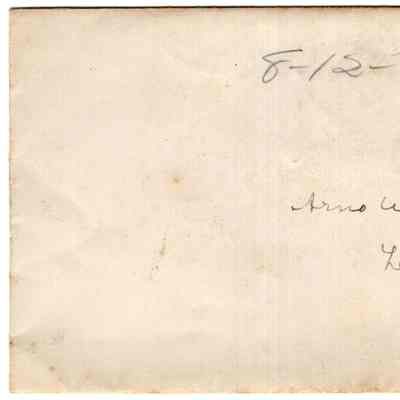 8-12-
Arno